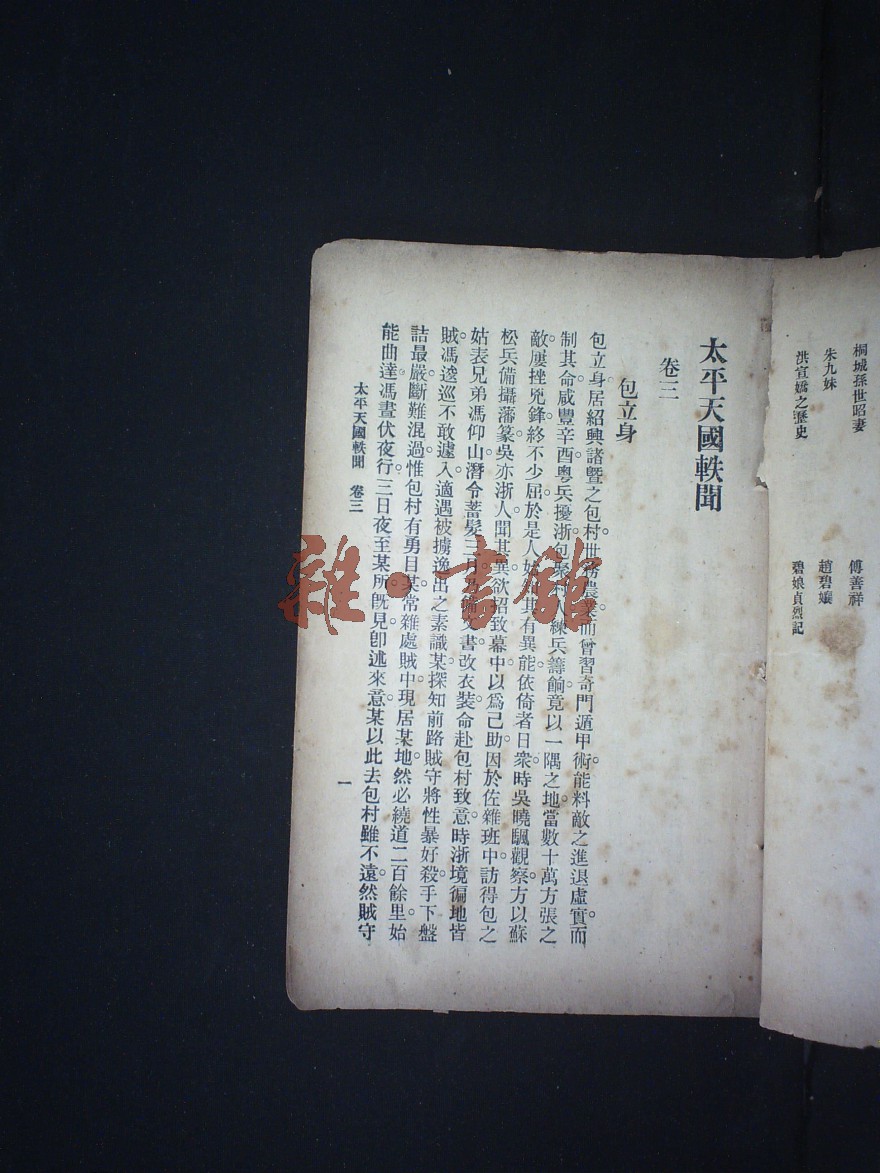 桐城孫世昭妻　傅善祥
朱九妹　趙碧孃
洪宣嬌之歷史　碧娘貞烈記
太平天國軼聞
卷三
包立身
包立身居紹興諸暨之包村。世務農業。而曾習奇門遁甲術。能料敵之進退虛實。而
制其命。咸豐辛酉。粵兵擾浙。包聚村人練兵籌餉。竟以一隅之地。當數十萬方張之
敵。屢挫兇鋒。終不少屈。於是人始知其有異能。依倚者日衆。時吳曉颿觀察方以蘇
松兵備攝藩篆。吳亦浙人。聞其異。欲招致幕中。以爲己助。因於佐雜班中。訪得包之
姑表兄弟馮仰山。潛令蓄髮三月。乃備文書。改衣裝。命赴包村致意。時浙境徧地皆
賊。馮逡巡不敢遽入。適遇被擄逸出之素識某。探知前路賊守將性暴好殺。手下盤
詰最嚴。斷難混過。惟包村有勇目某。常雜處賊中。現居某地。然必繞道二百餘里。始
能曲達。馮晝伏夜行。三日夜至某所。旣見。卽述來意。某以此去包村雖不遠。然賊守
太平天國軼聞　卷三　一
雜·書館